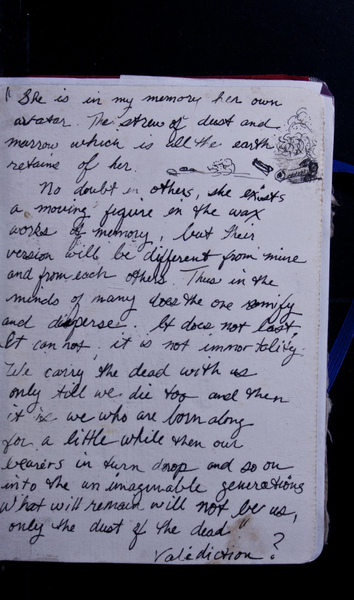 "She is in my memory her own
avatar. The strew of dust and
marrow which is all the earth
retains of her.
No doubt in others, she exists
a moving figure in the wax
works of memory, but their
version will be different from mine
and from each others. Thus in the
minds of many does the one ramify
and disperse. It does not last
It can not, it is not immortality.
We carry the dead with us
only till we die too and then
it is we who are born along
for a little while then our
bearers in turn drop and so on
into the unimaginable generations
What will remain will not be us,
only the dust of the dead"
Valediction ?